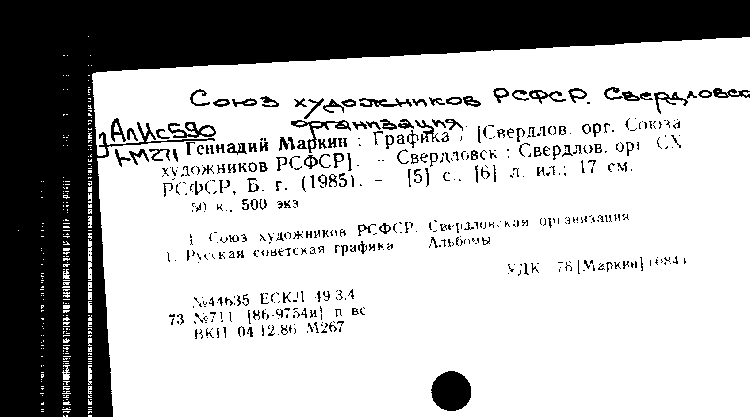 Союз художников РСФСР. Свердловс
организация
АлИс590
Геннадий Маркин : Графика / [Свердлов. орг. Союза
художников РСФСР]. – Свердловск : Свердлов. орг. СХ
РСФСР, Б. г. (1985). – [5] с., [6] л. ил.; 17 см.
50 к., 500 экз
1. Союз художников РСФСР. Свердловская организация
1. Русская советская графика Альбомы
УДК 76[Маркин](084)
№44635 ЕСКЛ 49.3.4
73 №711 [86-9754и] п вс
ВКП 04.12.86 М267